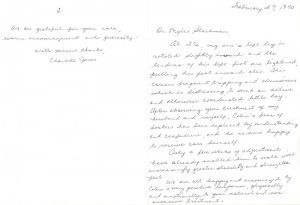 February 27, 1990
Dr. Myles
At 2½, my son's left leg is
rotated slightly inward and the
tendons of his left foot are tightened,
pulling his foot inward also. This
causes frequent tripping and clumsiness
which is distressing to such an active
and otherwise coordinated little boy.
After observing your treatment of my
husband and myself, Colin's fear of
doctors has been replaced by understanding
and cooperation, and he is now happy
to receive care himself.
Only a few weeks of adjustments
have already enabled him to walk with
increasingly greater dexterity and straighter
feet.
We are all happy and encouraged by
Colin's very positive response, physically
and emotionally, to your natural and non
invasive treatment.
2
are grateful for your care,
warm encouragement and generosity.
With sincere thanks,
Charlotte Jones